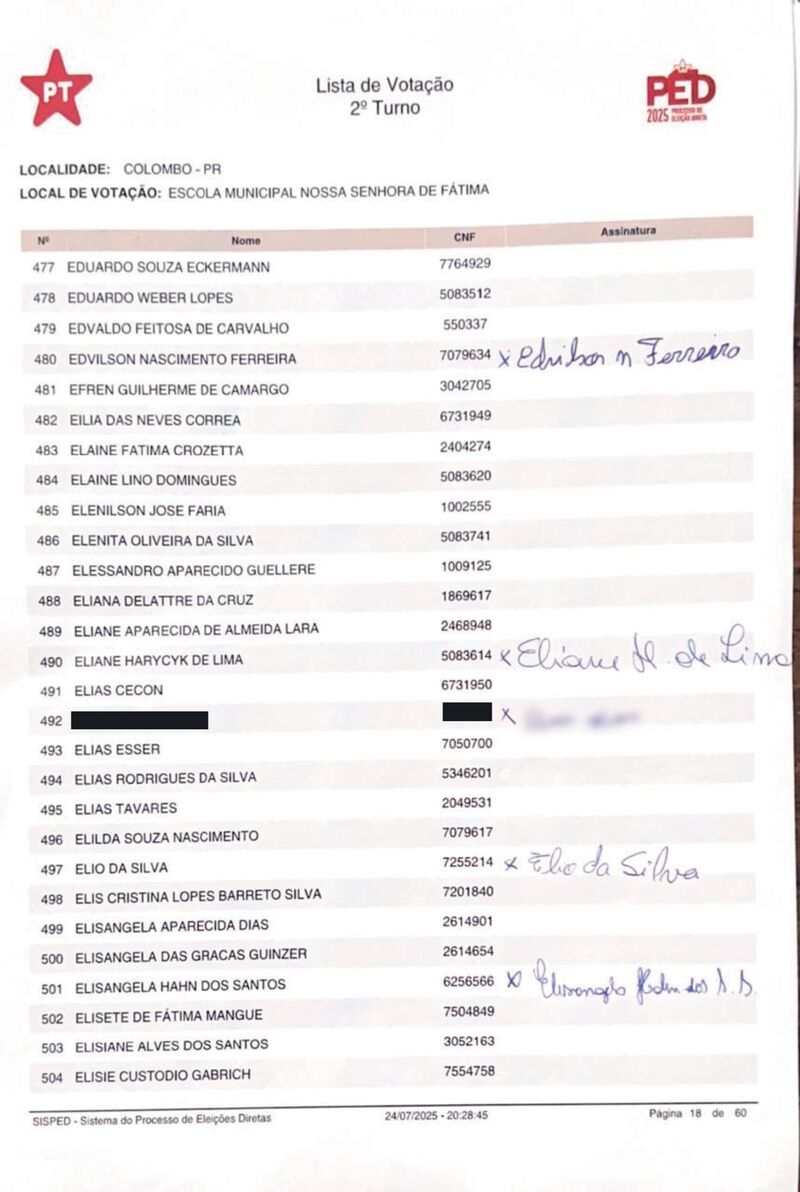 PT
Lista de Votação
2º Turno
PED
2025 PROCESSO DE ELEIÇÃO DIRETA
LOCALIDADE: COLOMBO - PR
LOCAL DE VOTAÇÃO: ESCOLA MUNICIPAL NOSSA SENHORA DE FÁTIMA
Nº Nome CNF Assinatura
477 EDUARDO SOUZA ECKERMANN 7764929
478 EDUARDO WEBER LOPES 5083512
479 EDVALDO FEITOSA DE CARVALHO 550337
480 EDVILSON NASCIMENTO FERREIRA 7079634 x Edvilson n Ferreira
481 EFREN GUILHERME DE CAMARGO 3042705
482 EILIA DAS NEVES CORREA 6731949
483 ELAINE FATIMA CROZETTA 2404274
484 ELAINE LINO DOMINGUES 5083620
485 ELENILSON JOSE FARIA 1002555
486 ELENITA OLIVEIRA DA SILVA 5083741
487 ELESSANDRO APARECIDO GUELLERE 1009125
488 ELIANA DELATTRE DA CRUZ 1869617
489 ELIANE APARECIDA DE ALMEIDA LARA 2468948
490 ELIANE HARYCYK DE LIMA 5083614 x Eliane H. de Lima
491 ELIAS CECON 6731950
492 x
493 ELIAS ESSER 7050700
494 ELIAS RODRIGUES DA SILVA 5346201
495 ELIAS TAVARES 2049531
496 ELILDA SOUZA NASCIMENTO 7079617
497 ELIO DA SILVA 7255214 x Elio da Silva
498 ELIS CRISTINA LOPES BARRETO SILVA 7201840
499 ELISANGELA APARECIDA DIAS 2614901
500 ELISANGELA DAS GRACAS GUINZER 2614654
501 ELISANGELA HAHN DOS SANTOS 6256566 x Elisangela Hahn dos S.
502 ELISETE DE FÁTIMA MANGUE 7504849
503 ELISIANE ALVES DOS SANTOS 3052163
504 ELISIE CUSTODIO GABRICH 7554758
SISPED - Sistema do Processo de Eleições Diretas 24/07/2025 - 20:28:45 Página 18 de 60